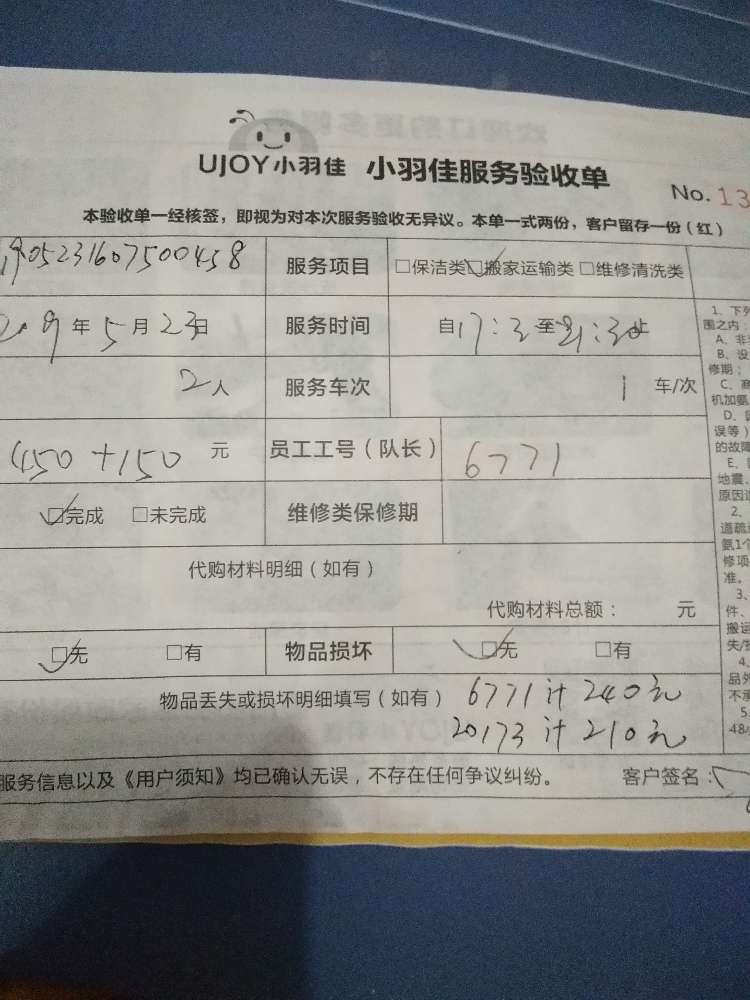 UJOY小羽佳 小羽佳服务验收单
No. 13
本验收单一经核签，即视为对本次服务验收无异议。本单一式两份，客户留存一份（红）
05231607500458 服务项目 □保洁类 ☑搬家运输类 □维修清洗类
年5月23日 服务时间 自17:3至21:30止
2人 服务车次 1 车/次
450+150 元 员工工号（队长） 6771
☑完成 □未完成 维修类保修期
代购材料明细（如有）
代购材料总额： 元
☑无 □有 物品损坏 ☑无 □有
物品丢失或损坏明细填写（如有） 6771计240元
20173计210元
服务信息以及《用户须知》均已确认无误，不存在任何争议纠纷。 客户签名：
1、下列
围之内：
A、非
B、设
修期；
C、商
机加氨
D、因
误等）
的故障
E、
地震、
原因造
2、
道疏通
氨1个
修项
准。
3、
件、
搬运
失/损
4、
品外
不承
5、
48小